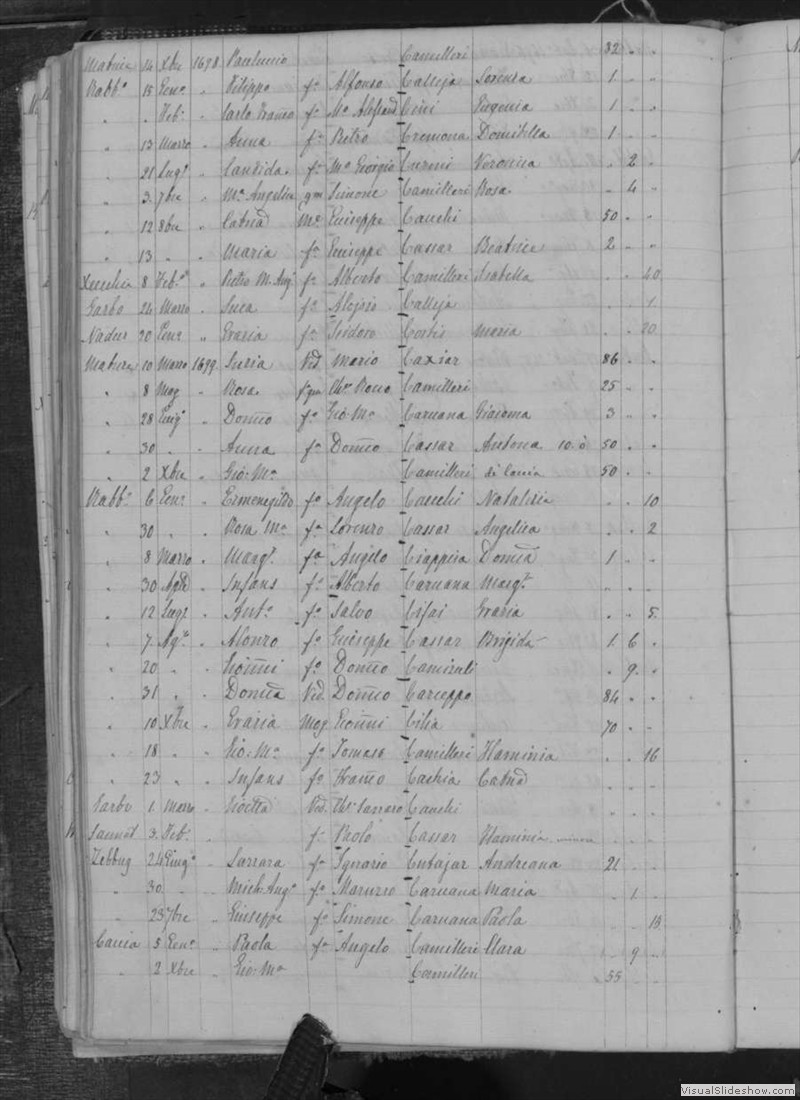 Matrice 14 Xbre 1698 Paulucio Camilleri 32 . .
Rabb.o 15 Gen.o " Filippo f.a Alfonso Calleja Lorenza 1 . "
" . Feb. " Carlo Fran.co f.o M.o Cini Eugenia 1 . "
" 13 Marzo " Anna f.a Pietro Cremona Domitilla 1 . "
" 21 Lug.o " Candida f.a M.o Giorgio Curmi Veronica . 2 "
" 3 7bre " M.a Angelica qm Simone Camilleri Rosa . 4 .
" 12 8bre " Catrina M.e Giuseppe Cauchi 50 . .
" 13 . " Maria f.a Giuseppe Cassar Beatrice 2 . "
8 Feb.o " Pietro M. Ang. f.o Alberto Camilleri Isabella . . 40
Garbo 24 Marzo " Luca f.o Alojsio Calleja . . 1
Nadur 20 Gen. " Grazia f.a Isidoro Cortis Maria . . 20
Matrice 10 Marzo 1699 Luria Vid. Mario Caxiar 86 . .
" 8 Mag " Rosa Rocco Camilleri 25 . .
" 28 Giug.o " Dom.co f.o Gio: M.a Caruana Giacoma 3 . "
" 30 . " Anna f.a Dom.co Cassar Antona 10. ò 50 . .
" 2 Xbre " Gio: M.a Camilleri di Cauia 50 . .
Rabb.o 6 Gen. " Ermenegildo f.o Angelo Cauchi Natalizia . . 10
" 30 . " Rosa M.a f.a Lorenzo Cassar Angelica . . 2
" 8 Marzo " Marg.t f.a Angelo Ciappisa Dom.ca 1 . .
" 30 Aple " Infans f. Alberto Caruana Marg.t . . .
" 12 Lugl " Ant.o f.o Salvo Cifai Grazia . . 5
" 7 Ag.o " Alonzo f.o Giuseppe Cassar Brigida 1. 6 .
" 20 . " Gionni f.o Dom.co . 9 .
" 31 . " Dom.ca Vid. Dom.co Carceppo 84 . .
" 10 Xbre " Grazia Mog Gionni Cilia 70 . .
" 18 . " Gio: M.a f.o Tomaso Camilleri Flaminia . . 16
" 23 . " Infans f.o Fran.co Cachia Catrina . . .
Garbo 1 Marzo " Vid. Cauchi . . .
Sannat 3 Feb. " f. Paolo Cassar Flaminia . .
Zebbug 24 Giug.o " Sarrara f.a Ignazio Cutajar Andreana 21 . .
" 30 . " Mich: Ang.o f.o Maruzio Caruana Maria . 1 .
" 23 7bre " Giuseppe f.o Simone Caruana Paola . . 13
Cauia 5 Gen. " Paola f.a Angelo Camilleri Clara . 9 .
" 2 Xbre " Gio: M.a Camilleri 55 . .
VisualSlideshow.com